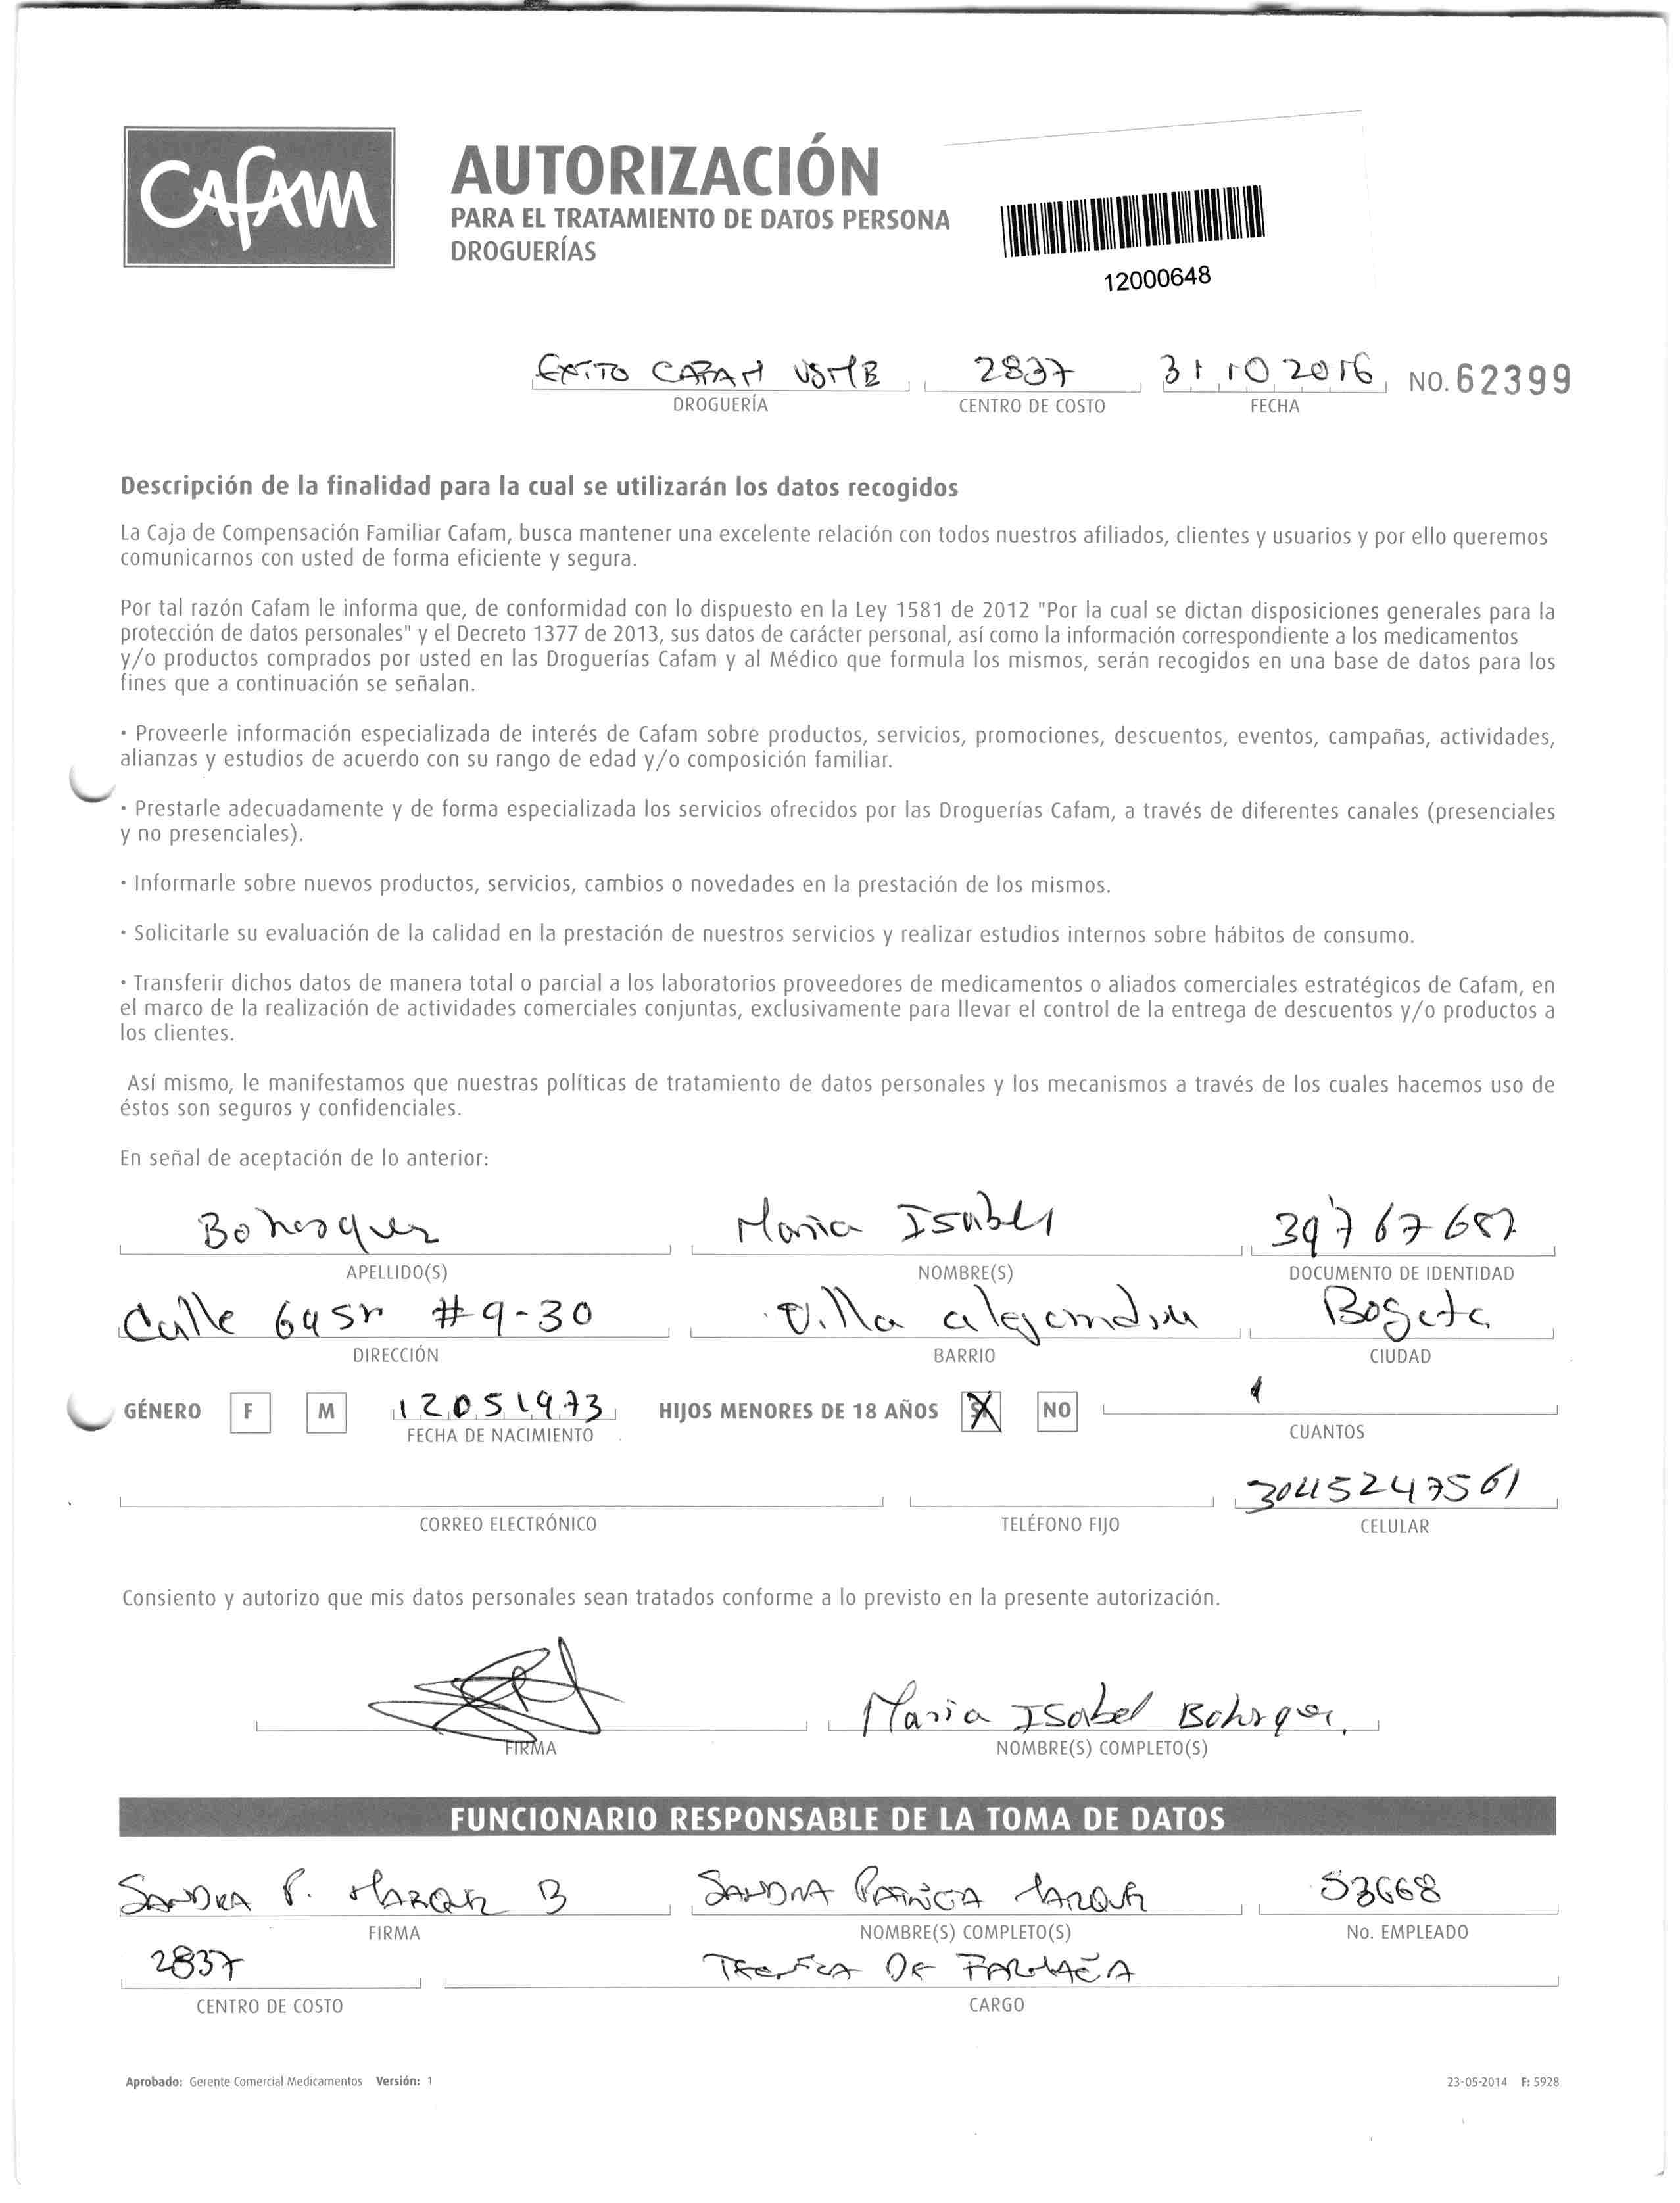 CAFAM
AUTORIZACIÓN
PARA EL TRATAMIENTO DE DATOS PERSONA
DROGUERÍAS
12000648
EXITO CAFAM USMB 2837 31 10 2016 NO. 62399
DROGUERÍA CENTRO DE COSTO FECHA
Descripción de la finalidad para la cual se utilizarán los datos recogidos
La Caja de Compensación Familiar Cafam, busca mantener una excelente relación con todos nuestros afiliados, clientes y usuarios y por ello queremos
comunicarnos con usted de forma eficiente y segura.
Por tal razón Cafam le informa que, de conformidad con lo dispuesto en la Ley 1581 de 2012 "Por la cual se dictan disposiciones generales para la
protección de datos personales" y el Decreto 1377 de 2013, sus datos de carácter personal, así como la información correspondiente a los medicamentos
y/o productos comprados por usted en las Droguerías Cafam y al Médico que formula los mismos, serán recogidos en una base de datos para los
fines que a continuación se señalan.
· Proveerle información especializada de interés de Cafam sobre productos, servicios, promociones, descuentos, eventos, campañas, actividades,
alianzas y estudios de acuerdo con su rango de edad y/o composición familiar.
· Prestarle adecuadamente y de forma especializada los servicios ofrecidos por las Droguerías Cafam, a través de diferentes canales (presenciales
y no presenciales).
· Informarle sobre nuevos productos, servicios, cambios o novedades en la prestación de los mismos.
· Solicitarle su evaluación de la calidad en la prestación de nuestros servicios y realizar estudios internos sobre hábitos de consumo.
· Transferir dichos datos de manera total o parcial a los laboratorios proveedores de medicamentos o aliados comerciales estratégicos de Cafam, en
el marco de la realización de actividades comerciales conjuntas, exclusivamente para llevar el control de la entrega de descuentos y/o productos a
los clientes.
Así mismo, le manifestamos que nuestras políticas de tratamiento de datos personales y los mecanismos a través de los cuales hacemos uso de
éstos son seguros y confidenciales.
En señal de aceptación de lo anterior:
Bohorquez Maria Isabel 39767687
APELLIDO(S) NOMBRE(S) DOCUMENTO DE IDENTIDAD
Calle 69 sr # 9-30 Villa alejandra Bogota
DIRECCIÓN BARRIO CIUDAD
GÉNERO F M 12051973 HIJOS MENORES DE 18 AÑOS X NO 1
FECHA DE NACIMIENTO CUANTOS
3045247561
CORREO ELECTRÓNICO TELÉFONO FIJO CELULAR
Consiento y autorizo que mis datos personales sean tratados conforme a lo previsto en la presente autorización.
Maria Isabel Bohorquez
FIRMA NOMBRE(S) COMPLETO(S)
FUNCIONARIO RESPONSABLE DE LA TOMA DE DATOS
SANDRA P. MARQUEZ B SANDRA PATRICIA MARQUEZ 53668
FIRMA NOMBRE(S) COMPLETO(S) No. EMPLEADO
2837 TECNICA DE FARMACIA
CENTRO DE COSTO CARGO
Aprobado: Gerente Comercial Medicamentos Versión: 1 23-05-2014 F: 5928